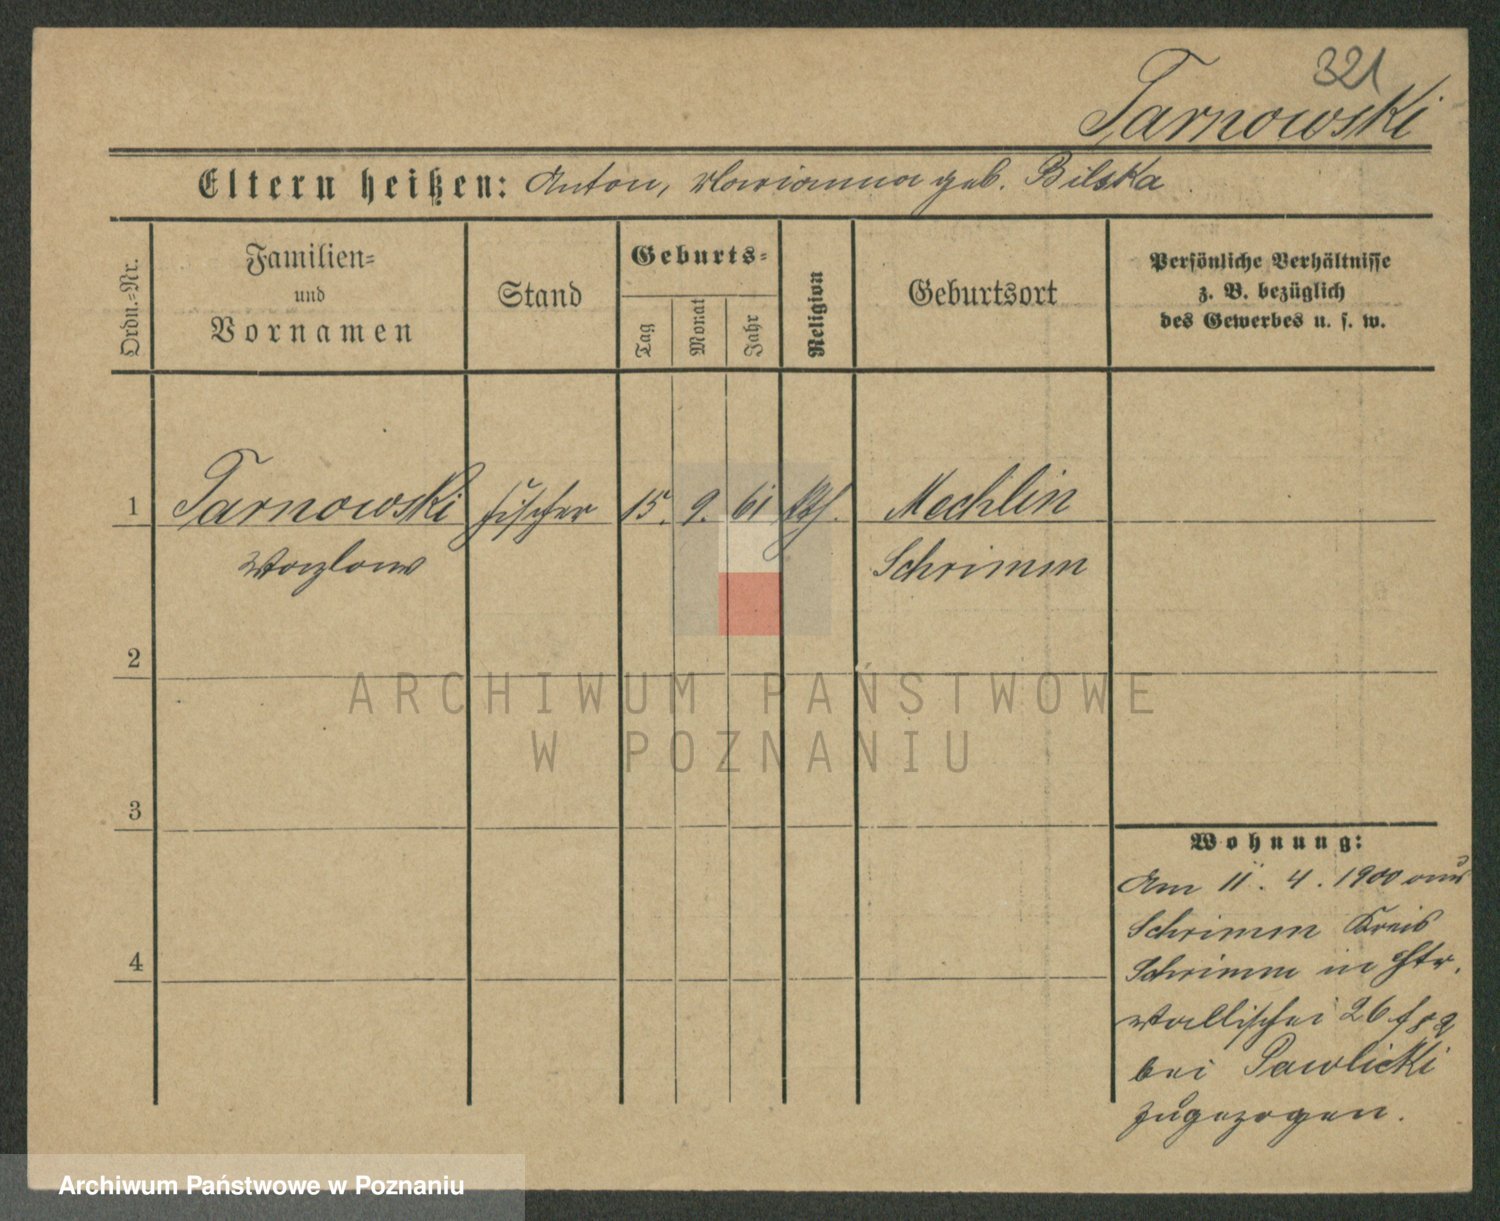 321
Tarnowski
Eltern heißen: Anton, Marianna geb. Bilska
Ordn.=Nr.
Familien=
und
Vornamen
Stand
Geburts=
Tag
Monat
Jahr
Religion
Geburtsort
Persönliche Verhältnisse
z. B. bezüglich
des Gewerbes u. s. w.
1 Tarnowski Fischer 15. 9. 61 kth. Mechlin
Wazlaw Schrimm
2
3
4
Wohnung:
Am 11. 4. 1900 aus
Schrimm Kreis
Schrimm in Str.
Wallischei 26
bei Pawlicki
zugezogen.
ARCHIWUM PAŃSTWOWE
W POZNANIU
Archiwum Państwowe w Poznaniu